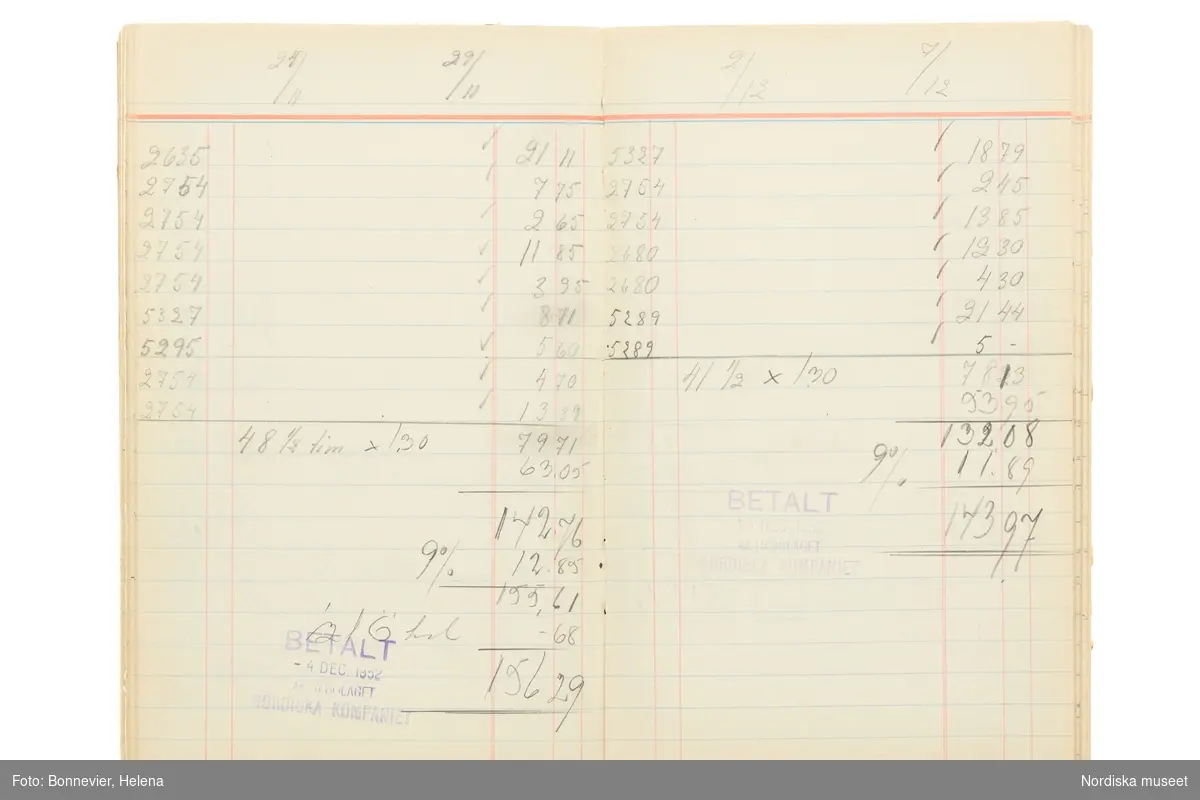 29/11
2635 21 11
2754 7 75
2754 2 65
2754 11 85
2754 3 95
5327 8 71
5295 5 60
2754 4 70
2754 13 39
48 1/2 tim x 1.30 79 71
63.05
142.76
9% 12.895
155,61
-68
156 29
BETALT
- 4 DEC. 1952
NORDISKA KOMPANIET
2/12 7/12
5327 18 79
2754 2 45
2754 13 85
2680 12 30
2680 4 30
5289 21 44
5289 5 -
41 1/2 x 1.30 78 13
53 95
132 08
9% 11.89
143 97
BETALT
NORDISKA KOMPANIET
Foto: Bonnevier, Helena
Nordiska museet